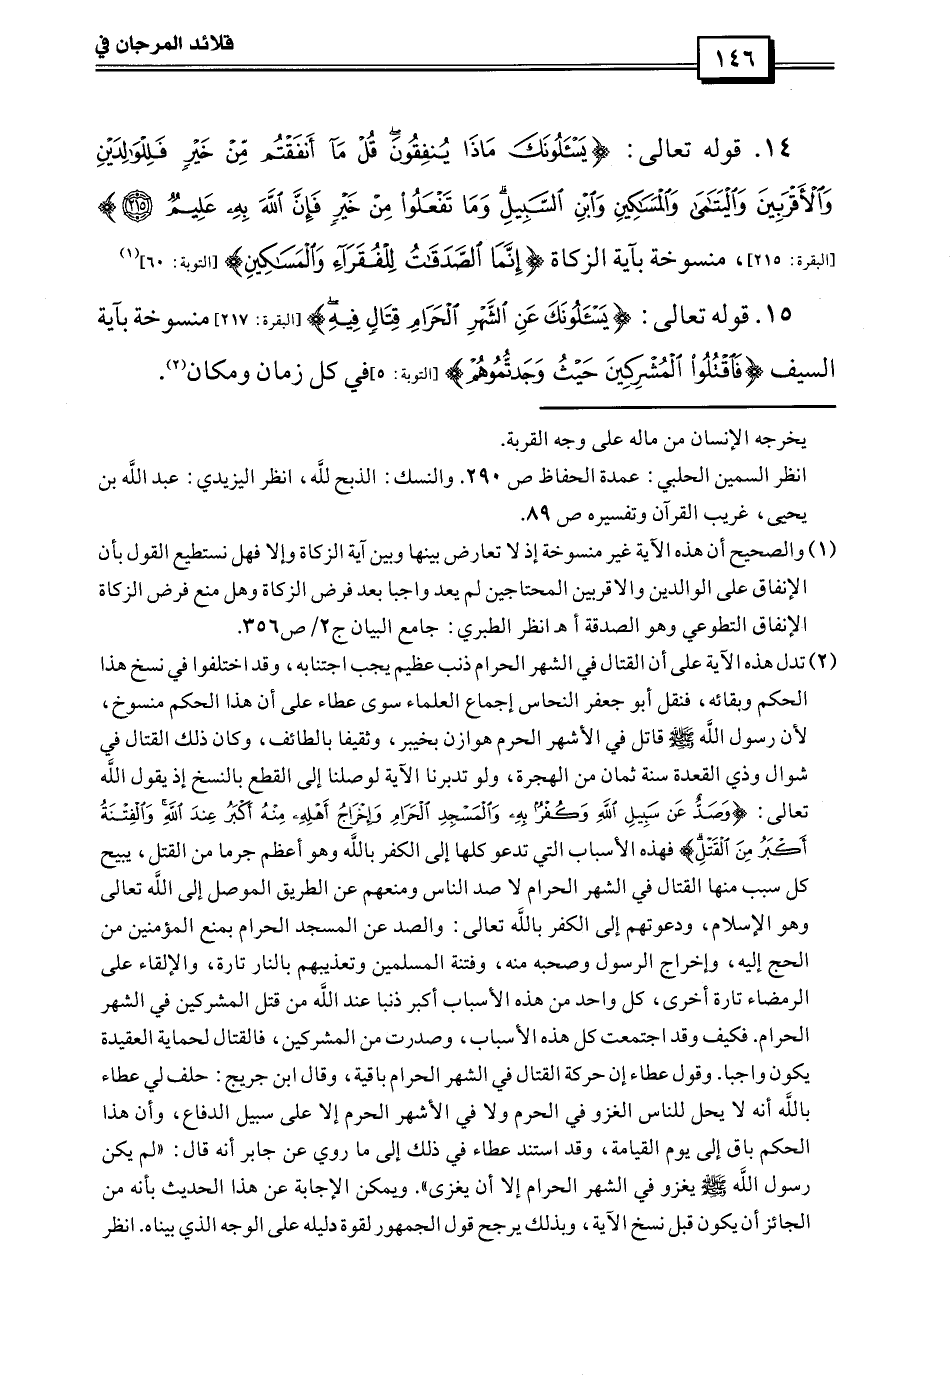 قلائد المرجان في
١٤٦
١٤. قوله تعالى: ﴿يَسْـَٔلُونَكَ مَاذَا يُنفِقُونَۖ قُلْ مَآ أَنفَقْتُم مِّنْ خَيْرٍ فَلِلْوَٰلِدَيْنِ
وَٱلْأَقْرَبِينَ وَٱلْيَتَٰمَىٰ وَٱلْمَسَٰكِينِ وَٱبْنِ ٱلسَّبِيلِۗ وَمَا تَفْعَلُوا۟ مِنْ خَيْرٍ فَإِنَّ ٱللَّهَ بِهِۦ عَلِيمٌ ٢١٥﴾
[البقرة: ٢١٥]، منسوخة بآية الزكاة ﴿إِنَّمَا ٱلصَّدَقَٰتُ لِلْفُقَرَآءِ وَٱلْمَسَٰكِينِ﴾ [التوبة: ٦٠](١)
١٥. قوله تعالى: ﴿يَسْـَٔلُونَكَ عَنِ ٱلشَّهْرِ ٱلْحَرَامِ قِتَالٍ فِيهِۖ﴾ [البقرة: ٢١٧] منسوخة بآية
السيف ﴿فَٱقْتُلُوا۟ ٱلْمُشْرِكِينَ حَيْثُ وَجَدتُّمُوهُمْ﴾ [التوبة: ٥] في كل زمان ومكان(٢).
يخرجه الإنسان من ماله على وجه القربة.
انظر السمين الحلبي: عمدة الحفاظ ص ٢٩٠. والنسك: الذبح للَّه، انظر اليزيدي: عبد اللَّه بن
يحيى، غريب القرآن وتفسيره ص ٨٩.
(١) والصحيح أن هذه الآية غير منسوخة إذ لا تعارض بينها وبين آية الزكاة وإلا فهل نستطيع القول بأن
الإنفاق على الوالدين والاقربين المحتاجين لم يعد واجبا بعد فرض الزكاة وهل منع فرض الزكاة
الإنفاق التطوعي وهو الصدقة أ هـ انظر الطبري: جامع البيان ج٢/ ص٣٥٦.
(٢) تدل هذه الآية على أن القتال في الشهر الحرام ذنب عظيم يجب اجتنابه، وقد اختلفوا في نسخ هذا
الحكم وبقائه، فنقل أبو جعفر النحاس إجماع العلماء سوى عطاء على أن هذا الحكم منسوخ،
لأن رسول اللَّه ﷺ قاتل في الأشهر الحرم هوازن بخيبر، وثقيفا بالطائف، وكان ذلك القتال في
شوال وذي القعدة سنة ثمان من الهجرة، ولو تدبرنا الآية لوصلنا إلى القطع بالنسخ إذ يقول اللَّه
تعالى: ﴿وَصَدٌّ عَن سَبِيلِ ٱللَّهِ وَكُفْرٌۢ بِهِۦ وَٱلْمَسْجِدِ ٱلْحَرَامِ وَإِخْرَاجُ أَهْلِهِۦ مِنْهُ أَكْبَرُ عِندَ ٱللَّهِۚ وَٱلْفِتْنَةُ
أَكْبَرُ مِنَ ٱلْقَتْلِۗ﴾ فهذه الأسباب التي تدعو كلها إلى الكفر باللَّه وهو أعظم جرما من القتل، يبيح
كل سبب منها القتال في الشهر الحرام لا صد الناس ومنعهم عن الطريق الموصل إلى اللَّه تعالى
وهو الإسلام، ودعوتهم إلى الكفر باللَّه تعالى: والصد عن المسجد الحرام بمنع المؤمنين من
الحج إليه، وإخراج الرسول وصحبه منه، وفتنة المسلمين وتعذيبهم بالنار تارة، والإلقاء على
الرمضاء تارة أخرى، كل واحد من هذه الأسباب أكبر ذنبا عند اللَّه من قتل المشركين في الشهر
الحرام. فكيف وقد اجتمعت كل هذه الأسباب، وصدرت من المشركين، فالقتال لحماية العقيدة
يكون واجبا. وقول عطاء إن حركة القتال في الشهر الحرام باقية، وقال ابن جريج: حلف لي عطاء
باللَّه أنه لا يحل للناس الغزو في الحرم ولا في الأشهر الحرم إلا على سبيل الدفاع، وأن هذا
الحكم باق إلى يوم القيامة، وقد استند عطاء في ذلك إلى ما روي عن جابر أنه قال: «لم يكن
رسول اللَّه ﷺ يغزو في الشهر الحرام إلا أن يغزى». ويمكن الإجابة عن هذا الحديث بأنه من
الجائز أن يكون قبل نسخ الآية، وبذلك يرجح قول الجمهور لقوة دليله على الوجه الذي بيناه. انظر